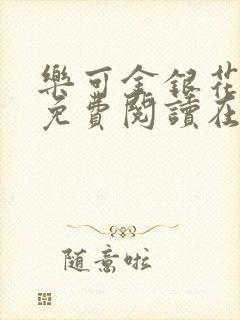 樂可金銀花
免費閱讀在
隨意啦